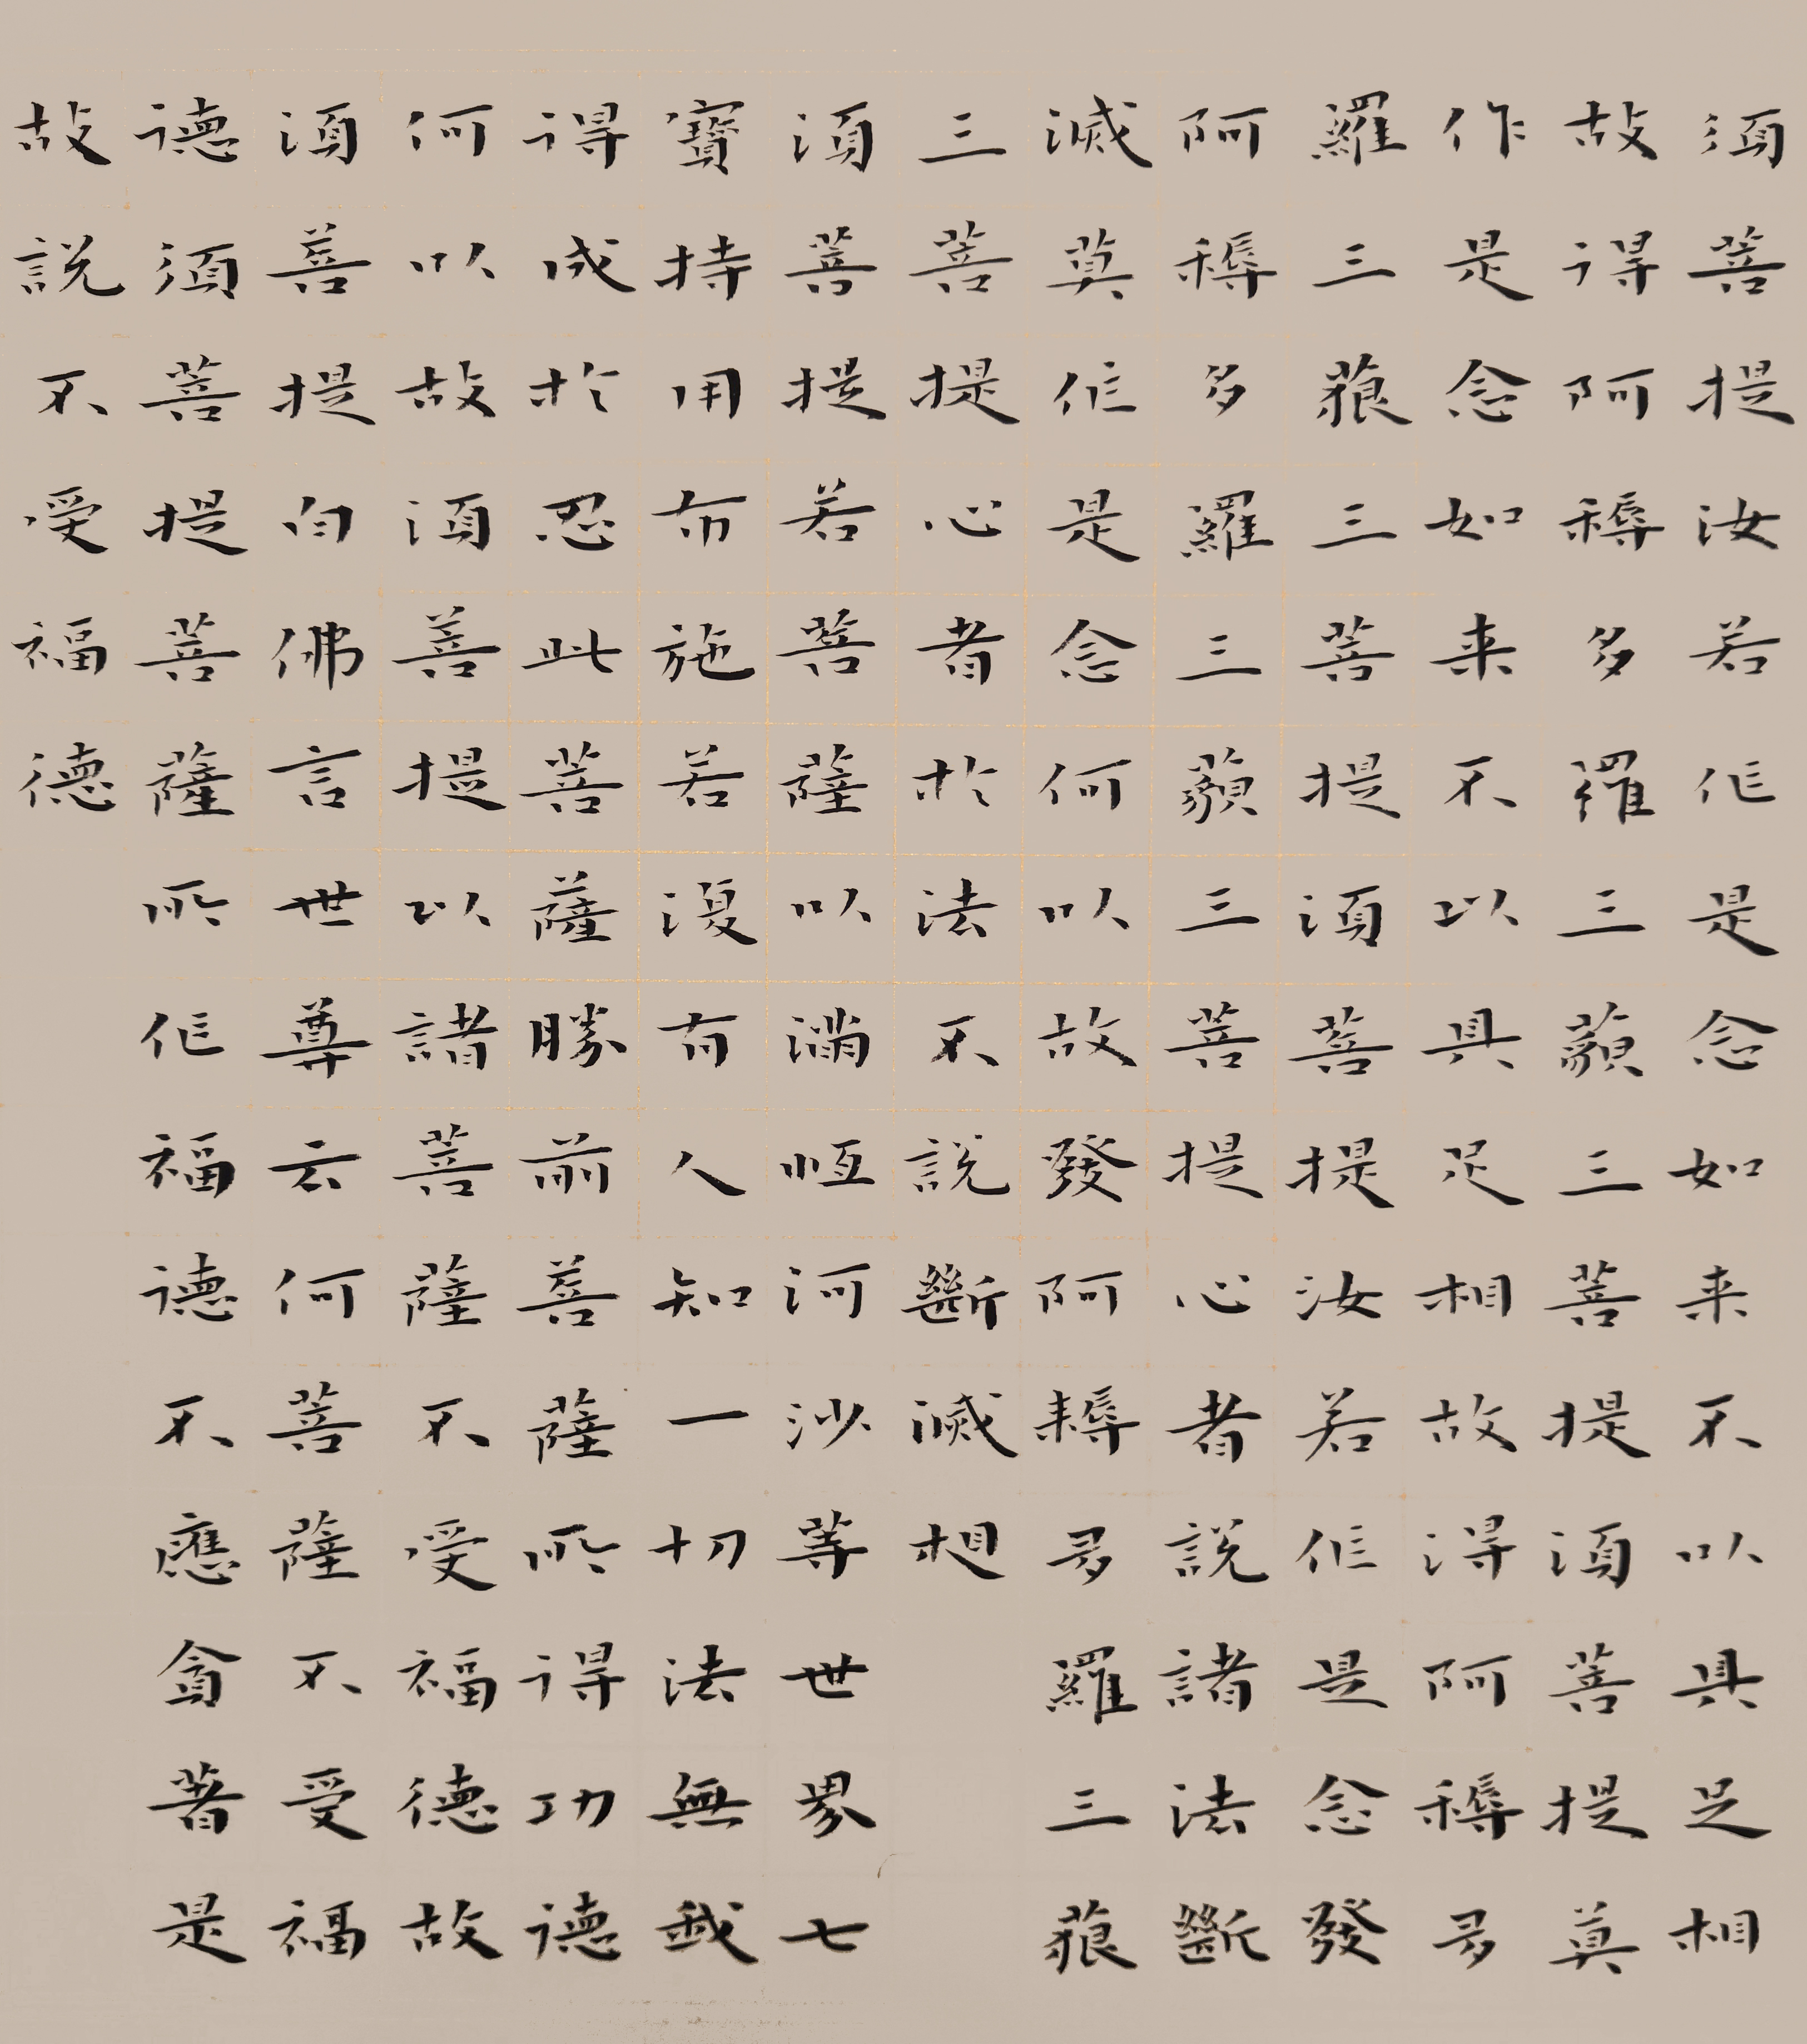 須菩提汝若作是念如来不以具足相
故得阿耨多羅三藐三菩提須菩提莫
作是念如来不以具足相故得阿耨多
羅三藐三菩提須菩提汝若作是念發
阿耨多羅三藐三菩提心者說諸法斷
滅莫作是念何以故發阿耨多羅三藐
三菩提心者於法不說斷滅相
須菩提若菩薩以滿恒河沙等世界七
寶持用布施若復有人知一切法無我
得成於忍此菩薩勝前菩薩所得功德
何以故須菩提以諸菩薩不受福德故
須菩提白佛言世尊云何菩薩不受福
德須菩提菩薩所作福德不應貪著是
故說不受福德